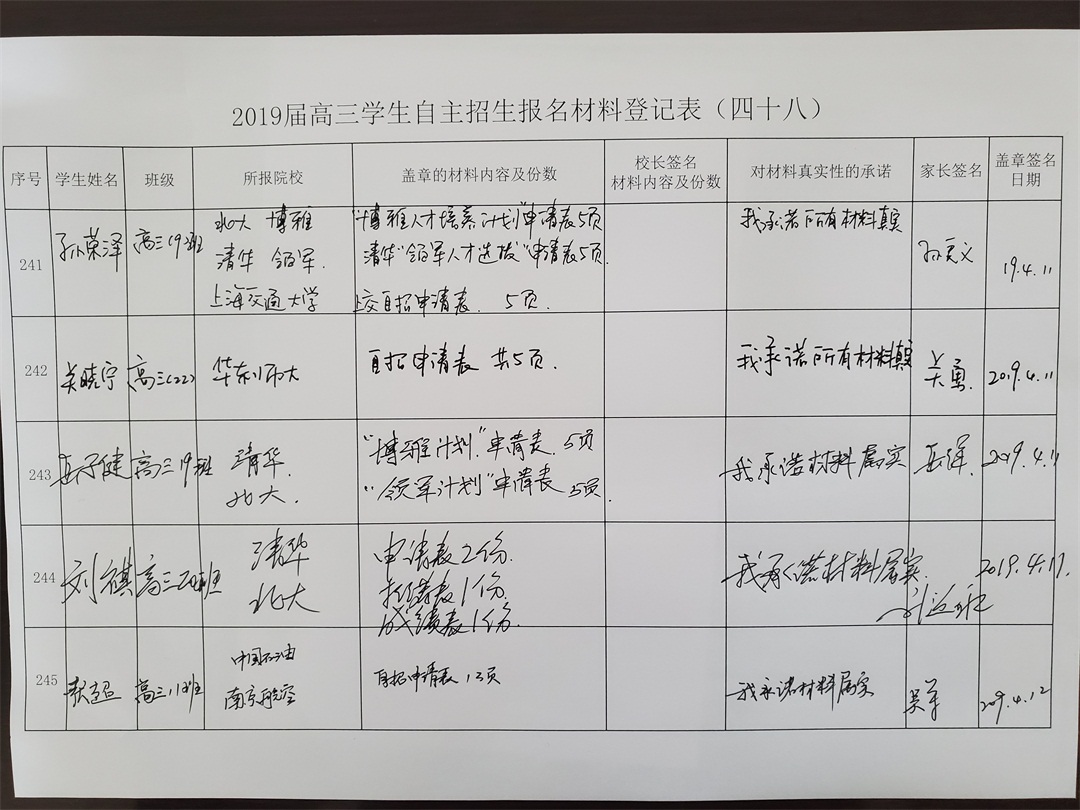 2019届高三学生自主招生报名材料登记表（四十八）
序号 学生姓名 班级 所报院校 盖章的材料内容及份数 校长签名 材料内容及份数 对材料真实性的承诺 家长签名 盖章签名 日期
241 孙荣泽 高三19班 北大 博雅 "博雅人才培养计划"申请表5页 我承诺所有材料真实
清华 领军. 清华"领军人才选拔"申请表5页. 19.4.11
上海交通大学 上交自招申请表. 5页.
242 吴晓宁 高三(22) 华东师大 自招申请表 共5页. 我承诺所有材料真实 吴勇 2019.4.11
243 岳子健 高三19班 清华. "博雅计划"申请表. 5页 我承诺材料属实 2019.4.11
北大. "领军计划"申请表 5页.
244 刘祺 高三20班 清华 申请表2份. 我承诺材料属实.
北大 1份.
成绩表1份.
245 张超 高三11班 中国石油 自招申请表 13页 我承诺材料属实 2019.4.12
南京航空